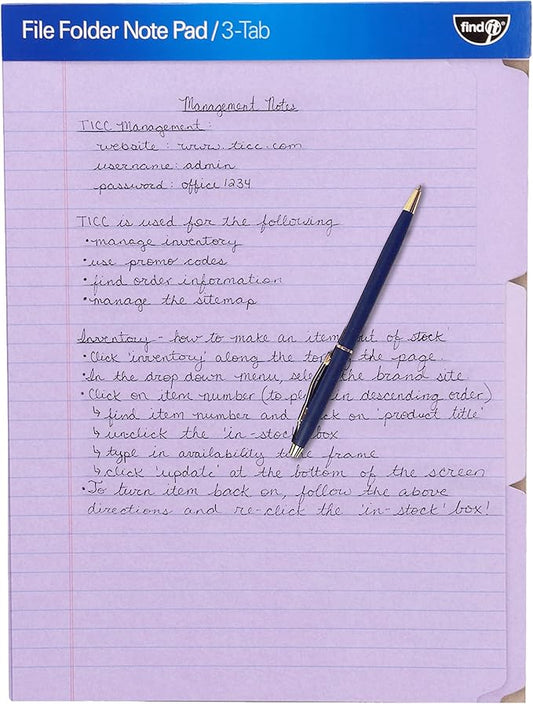 File Folder Note Pad / 3-Tab
find it®
Management Notes
TICC Management:
website : www.ticc.com
username: admin
password: office1234
TICC is used for the following
• manage inventory
• use promo codes
• find order information
• manage the sitemap
Inventory - how to make an item 'out of stock'
• Click 'inventory' along the top of the page.
• In the drop down menu, select the brand site
• Click on item number (to in descending order)
↳ find item number and click on 'product title'
↳ unclick the 'in-stock' box
↳ type in availability time frame
↳ click 'update' at the bottom of the screen
• To turn item back on, follow the above
directions and re-click the 'in-stock' box!